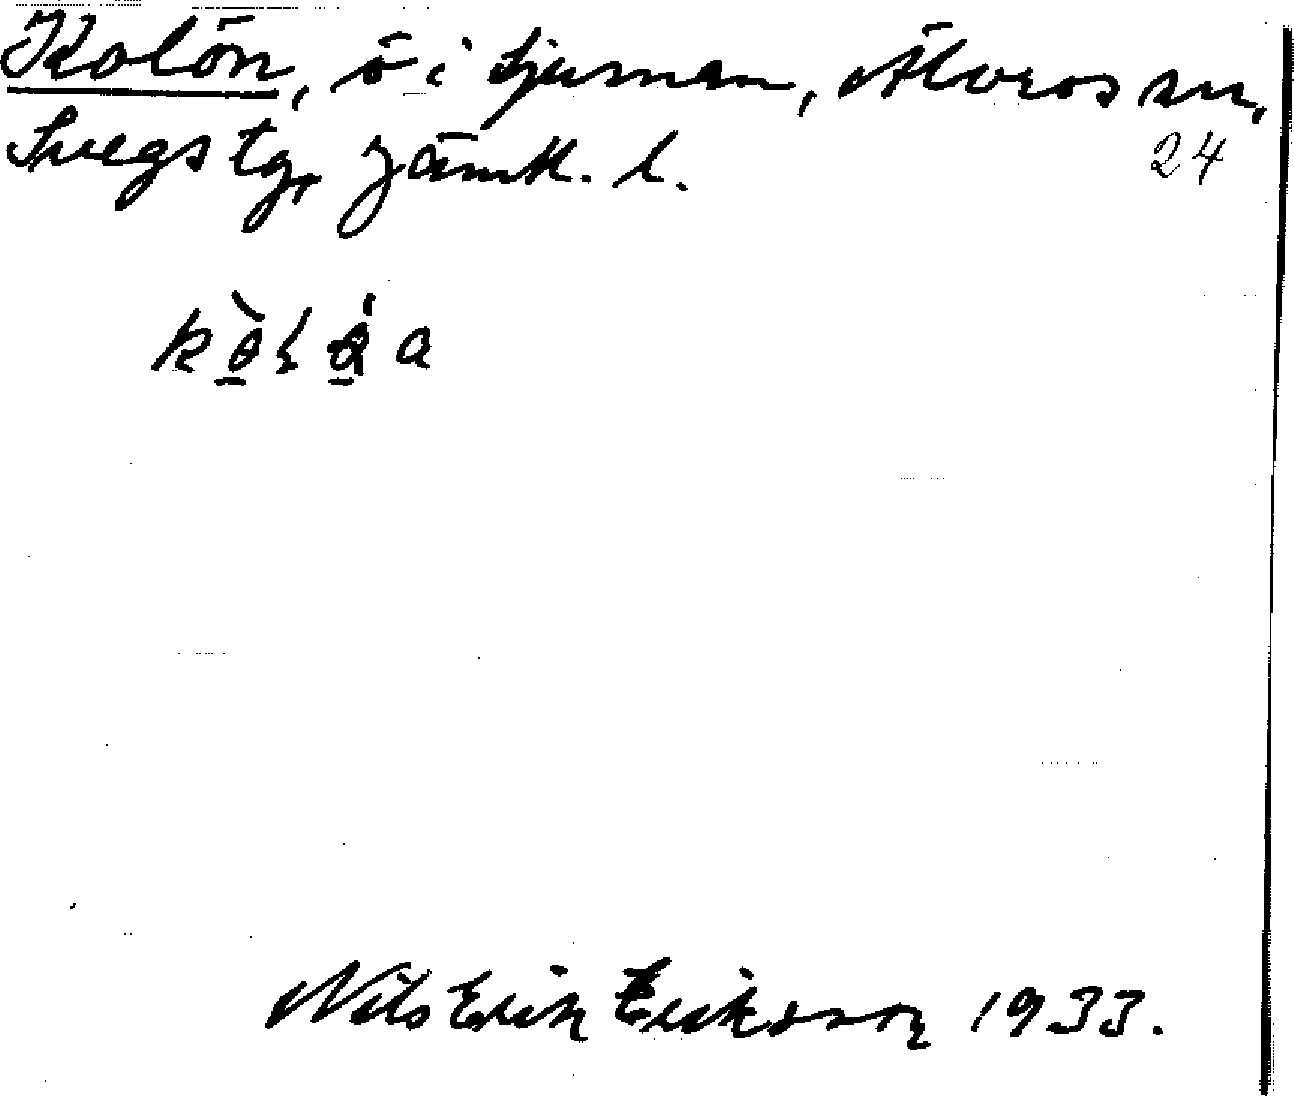 Kolön, ö i Ljusnan, Älvros sn,
Svegs tg, Jämtl. l.
24
Nils Erik Eriksson 1933.